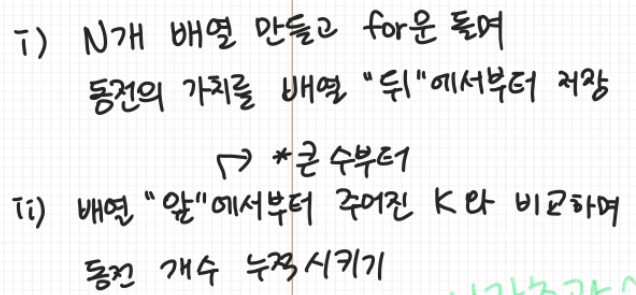 i) N개 배열 만들고 for운 돌며
동전의 가치를 배열 "뒤"에서부터 저장
↱ *큰 수부터
ii) 배열 "앞"에서부터 주어진 K와 비교하며
동전 개수 누적시키기